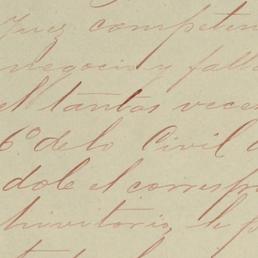 Juez competen
negocio y falle
el tantas veces
6º de lo Civil
dole el correspo